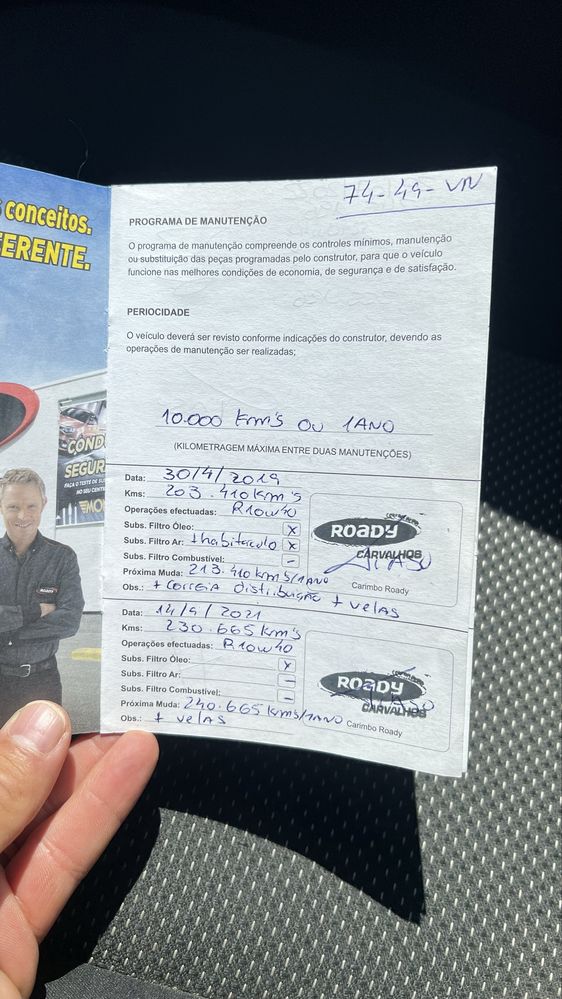 conceitos.
ERENTE.
COND
SEGUR
74-49-VN
PROGRAMA DE MANUTENÇÃO
O programa de manutenção compreende os controles mínimos, manutenção
ou substituição das peças programadas pelo construtor, para que o veículo
funcione nas melhores condições de economia, de segurança e de satisfação.
PERIOCIDADE
O veículo deverá ser revisto conforme indicações do construtor, devendo as
operações de manutenção ser realizadas;
10.000 Km's OU 1ANO
(KILOMETRAGEM MÁXIMA ENTRE DUAS MANUTENÇÕES)
Data: 30/4/2019
Kms: 203.410 Km's
Operações efectuadas: R10W40
Subs. Filtro Óleo: X
Subs. Filtro Ar: + habitaculo X
Subs. Filtro Combustível: -
Próxima Muda: 213.410 Kms/1ANO
Obs.: + correia distribuição + velas
ROADY
CARVALHOS
Carimbo Roady
Data: 14/9/2021
Kms: 230.665 Km's
Operações efectuadas: R10W40
Subs. Filtro Óleo: X
Subs. Filtro Ar: -
Subs. Filtro Combustível: -
Próxima Muda: 240.665 Kms/1ANO
Obs.: + velas
ROADY
CARVALHOS
Carimbo Roady